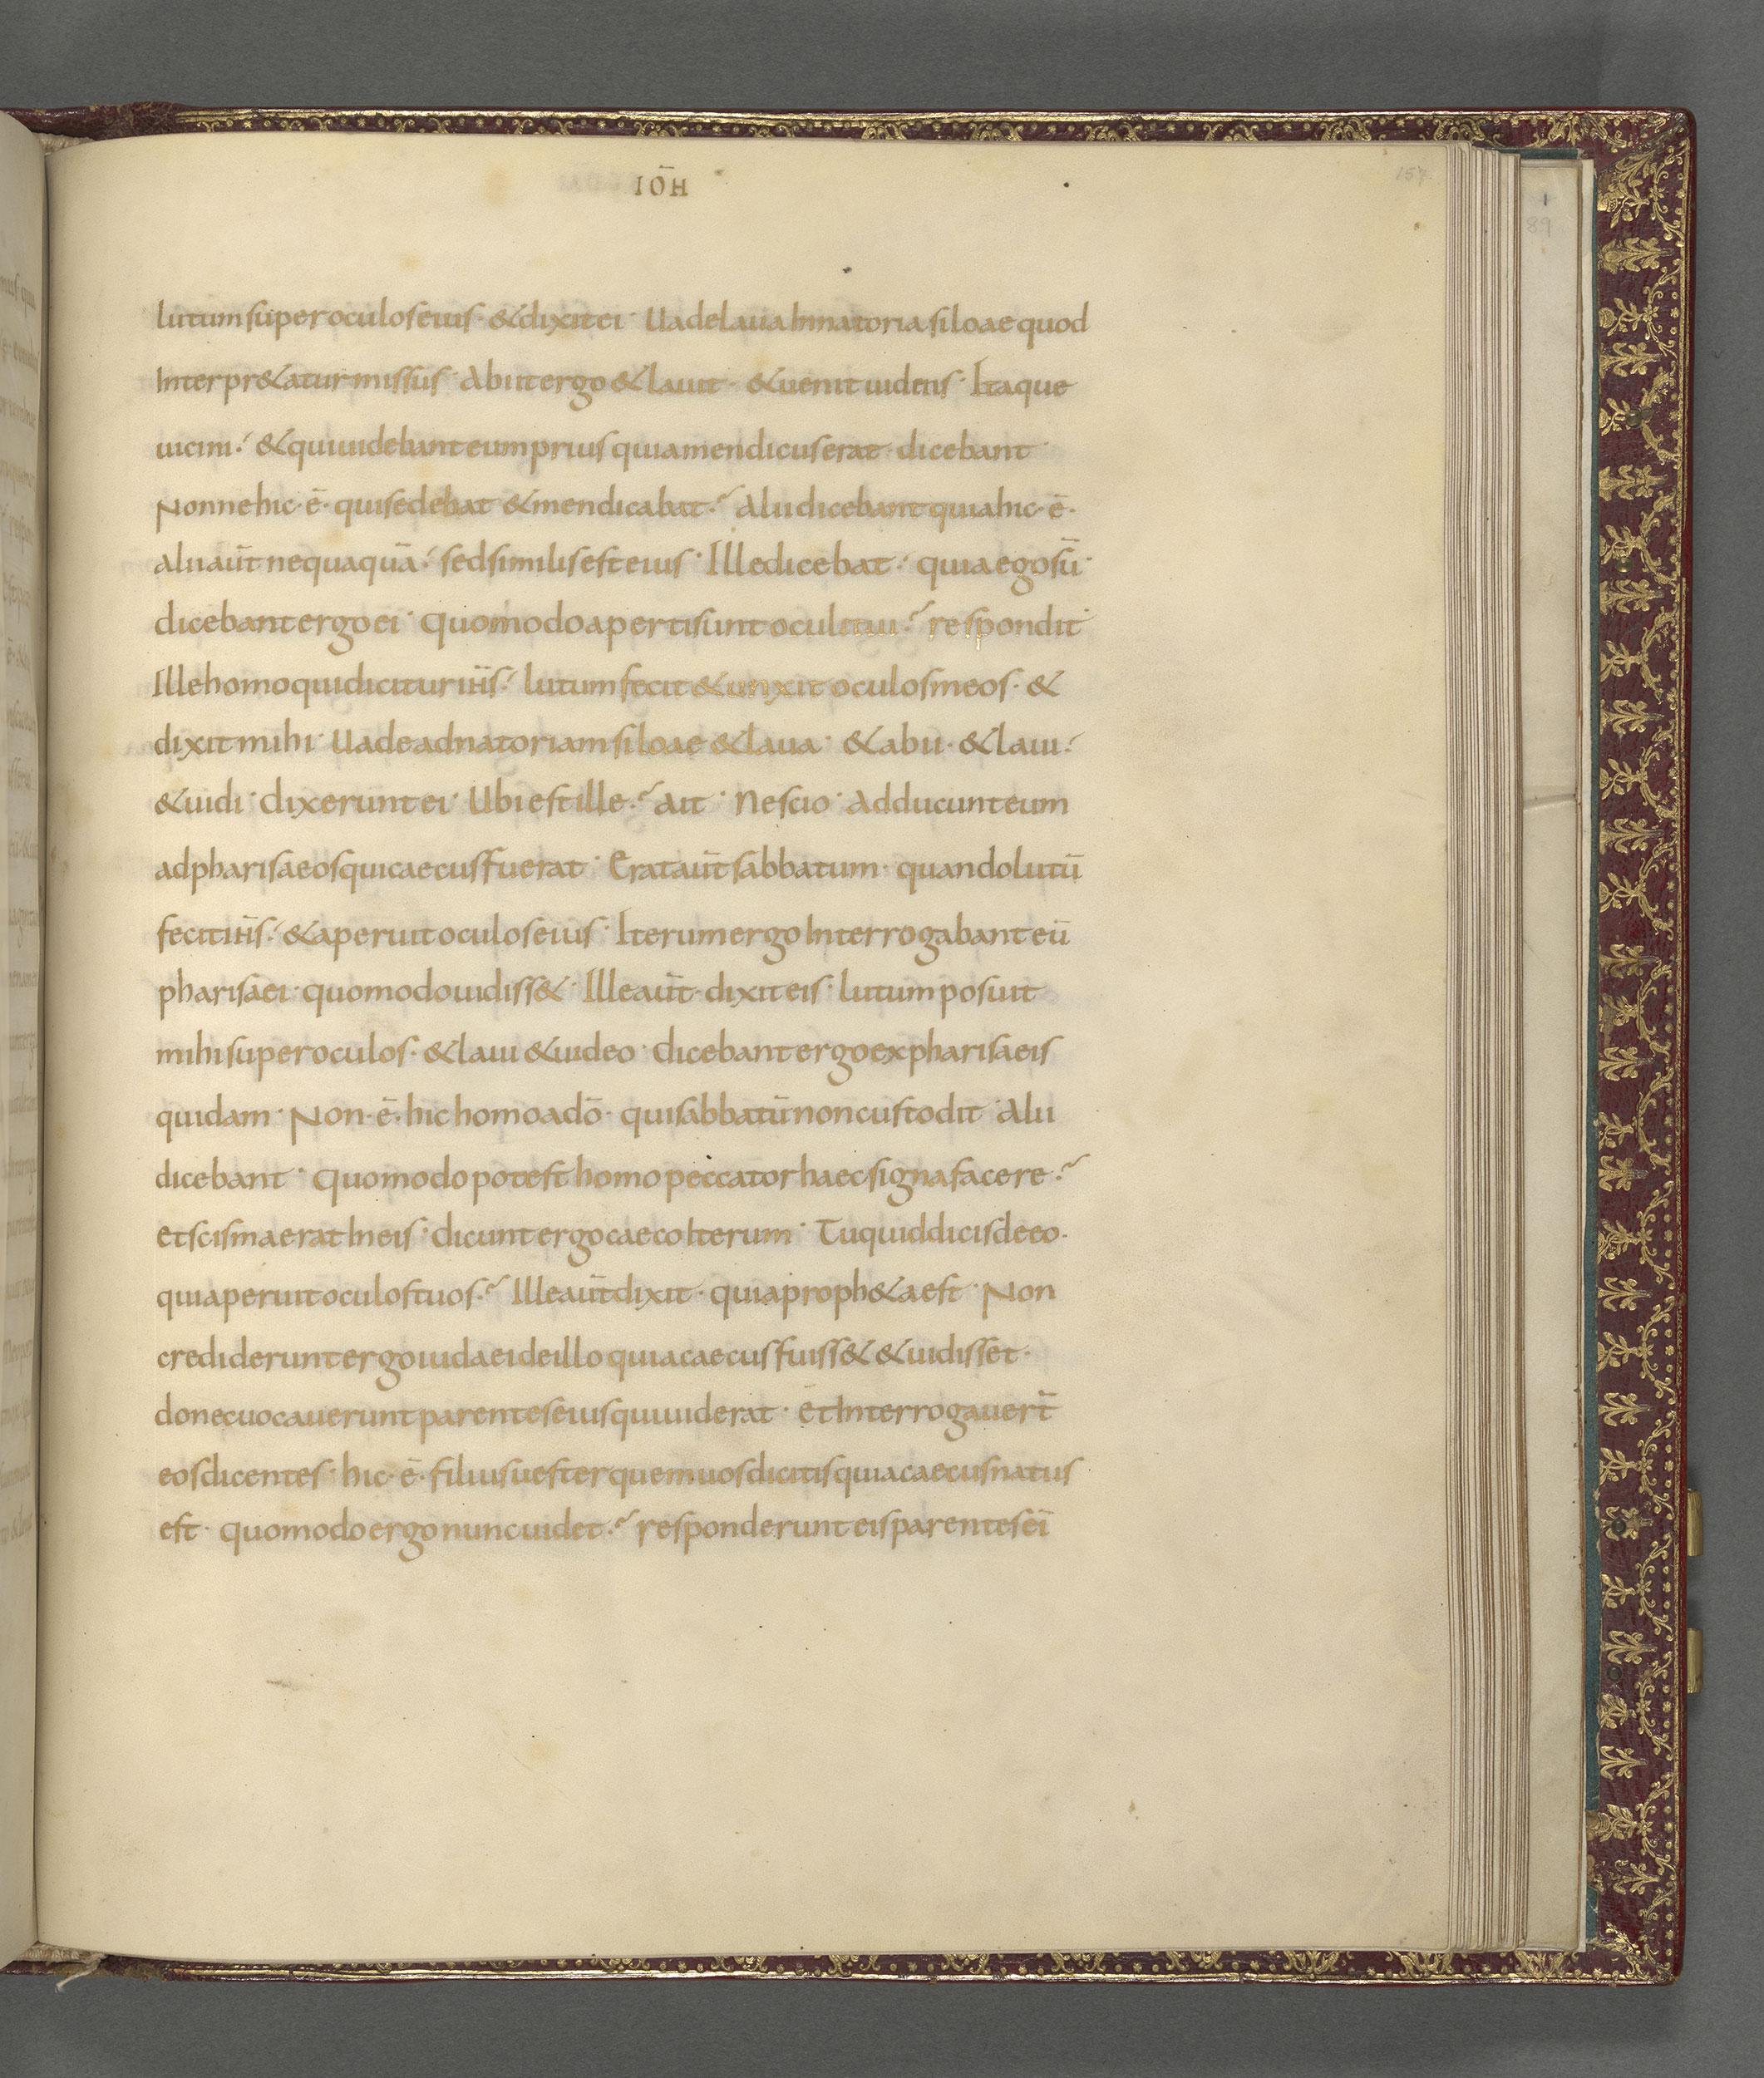 IOH̄
157
89
lutum super oculos eius · & dixit ei · Uade laua In natoria siloae quod
Interpr&atur missus · Abiit ergo & lauit · & uenit uidens · Itaque
uicini · & qui uidebant eum prius quia mendicus erat · dicebant ·
Nonne hic · ē · qui sedebat & mendicabat? Alii dicebant quia hic · ē ·
alii aūt nequaquā · sed similis est eius · Ille dicebat · quia ego sū ·
dicebant ergo ei · Quomodo aperti sunt oculi tui? respondit ·
Ille homo qui dicitur iħs · lutum fecit & unxit oculos meos · &
dixit mihi · Uade ad natoriam siloae & laua · & abii · & laui ·
& uidi · dixerunt ei · Ubi est ille? Ait · Nescio · Adducunt eum
ad pharisaeos qui caecus fuerat · Erat aūt sabbatum · quando lutū
fecit iħs · & aperuit oculos eius · Iterum ergo Interrogabant eū
pharisaei · quomodo uidiss& · Ille aūt · dixit eis · lutum posuit
mihi super oculos · & laui & uideo · dicebant ergo ex pharisaeis
quidam · Non · ē · hic homo a dō · qui sabbatū non custodit · Alii
dicebant · Quomodo potest homo peccator haec signa facere?
et scisma erat In eis · dicunt ergo caeco Iterum · Tu quid dicis de eo ·
qui aperuit oculos tuos? Ille aūt dixit · quia proph&a est · Non
crediderunt ergo iudaei de illo quia caecus fuiss& & uidisset ·
donec uocauerunt parentes eius qui uiderat · et Interrogauer̄t
eos dicentes · hic · ē · filius uester quem uos dicitis quia caecus natus
est · quomodo ergo nunc uidet? responderunt eis parentes eī